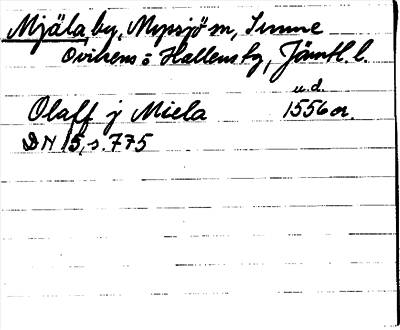 Mjäla by, Mypsjö sn, Sunne
Ovikens o Hallens tg, Jämtl. l.
u.d.
Olaff j Miela 1556 or.
DN 15, s. 775